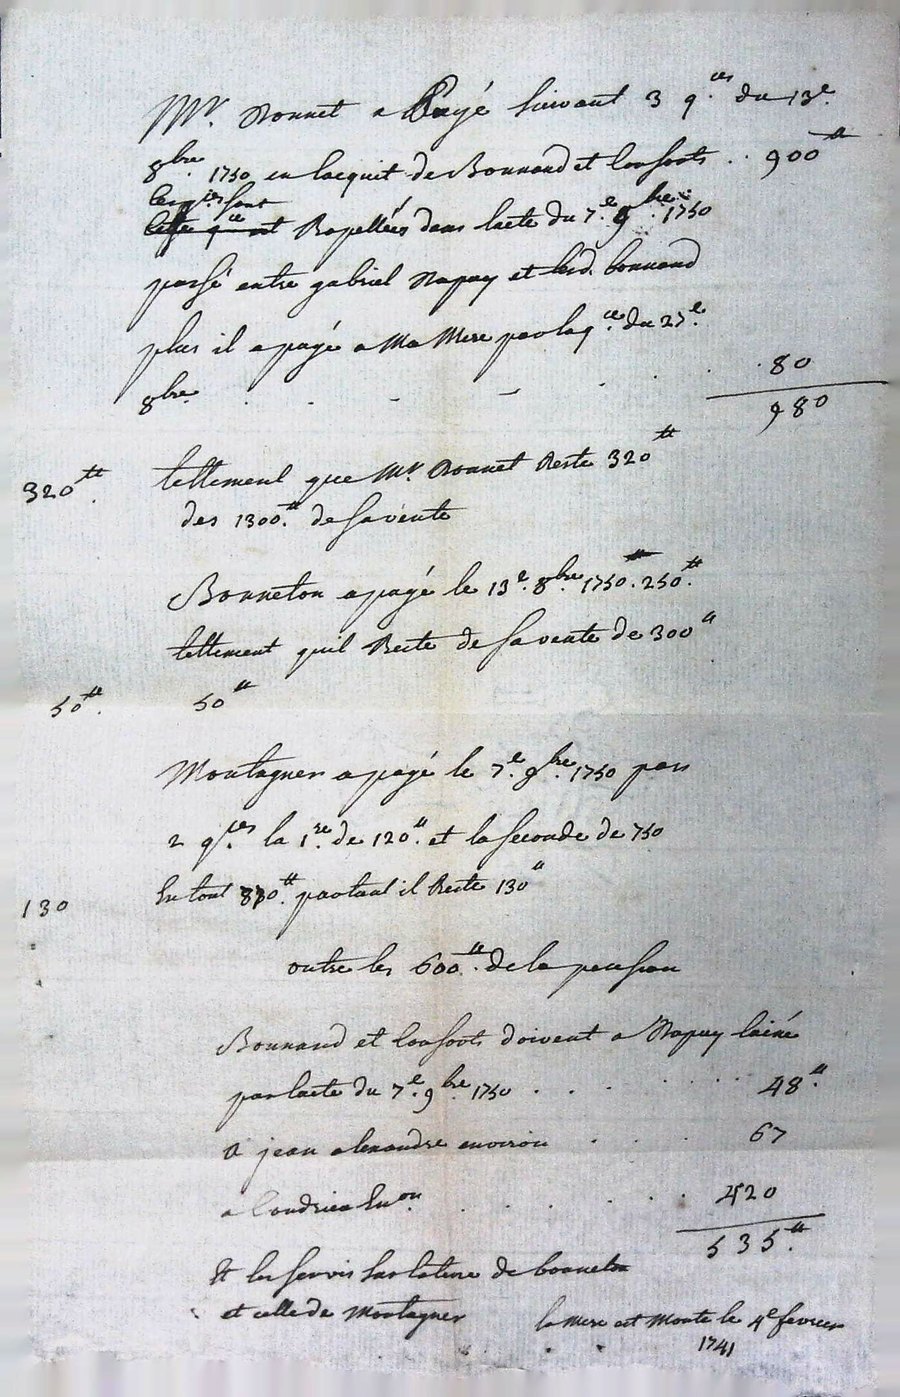 Mr. Bonnet a Payé suivant 3 q.ces du 13e.
8bre. 1750 en lacquit de Bonnand et Consorts .. 900tt
lesq.ces sont
Rapellées dans lacte du 7e. 9bre. 1750
passé entre gabriel Napay et lesd. bonnand
plus il a payé a Ma Mere par la q.ce du 27e.
8bre. . . - - - . . . . 80
980
320tt. tellement que Mr. Bonnet Reste 320tt
des 1300.tt de sa vente
Bonneton a payé le 13e. 8bre. 1750. 250.tt
tellement quil Reste de sa vente de 300tt
50tt. 50tt
Montagner a payé le 7e. 9bre. 1750 par
2 q.ces la 1re. de 120.tt et la seconde de 750
En tout 870.tt partant il Reste 130tt
130
outre les 600.tt de la pension
Bonnand et Consorts doivent a Napay lainé
par lacte du 7e. 9bre. 1750 . . . . . . 48.tt
a jean alexandre environ . . . 67
a En.on . . . . . . 420
535.tt
Et les servis sur la terre de bonneton
et celle de Montagner la Mere est Morte le 4e fevrier
1741